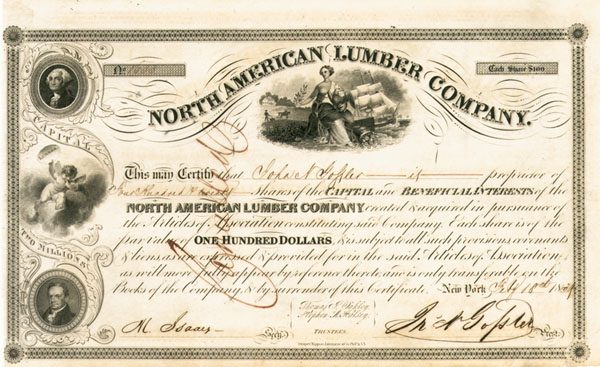 No.
Each Share $100
NORTH AMERICAN LUMBER COMPANY.
CAPITAL
TWO MILLIONS
This may Certify that John N Gossler is proprietor of
Shares of the CAPITAL and BENEFICIAL INTERESTS of the
NORTH AMERICAN LUMBER COMPANY created & acquired in pursuance of
the Articles of Association constituting said Company. Each share is of the
par value of ONE HUNDRED DOLLARS, & is subject to all such provisions covenants
& liens as are expressed & provided for in the said Articles of Association,
as will more fully appear by reference thereto and is only transferable on the
Books of the Company, & by surrender of this Certificate. New York Feby 10th
TRUSTEES.
M. Isaacs Secy.
Jn. N Gossler Prest.